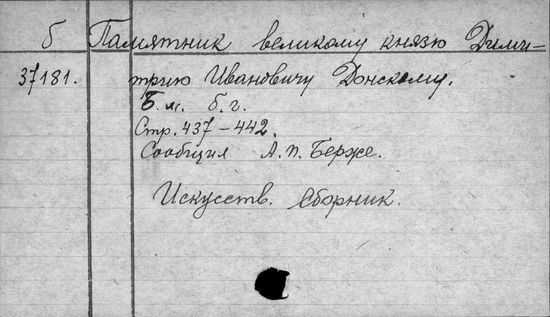 б Памятник великому князю Дими-
37181. трию Ивановичу Донскому.
Б.м. б.г.
Стр. 437-442.
Сообщил А.П. Берже.
Искусств. сборник.